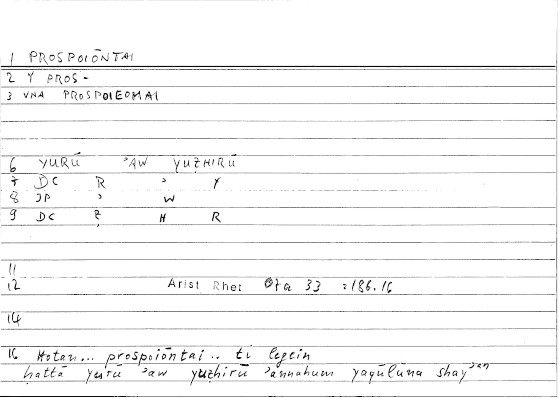 1 PROSPOIŌNTAI
2 Y PROS-
3 VNA PROSPOIEOMAI
6 YURŪ ʾAW YUẒHIRŪ
7 DC R ʾ Y
8 JP ʾ W
9 DC Ẓ H R
11
12 Arist Rhet 07a 33 :186.16
14
16 Hotan... prospoiōntai.. ti legein
ḥattā yurū ʾaw yuẓhirū ʾannahum yaqūlūna shayʾan